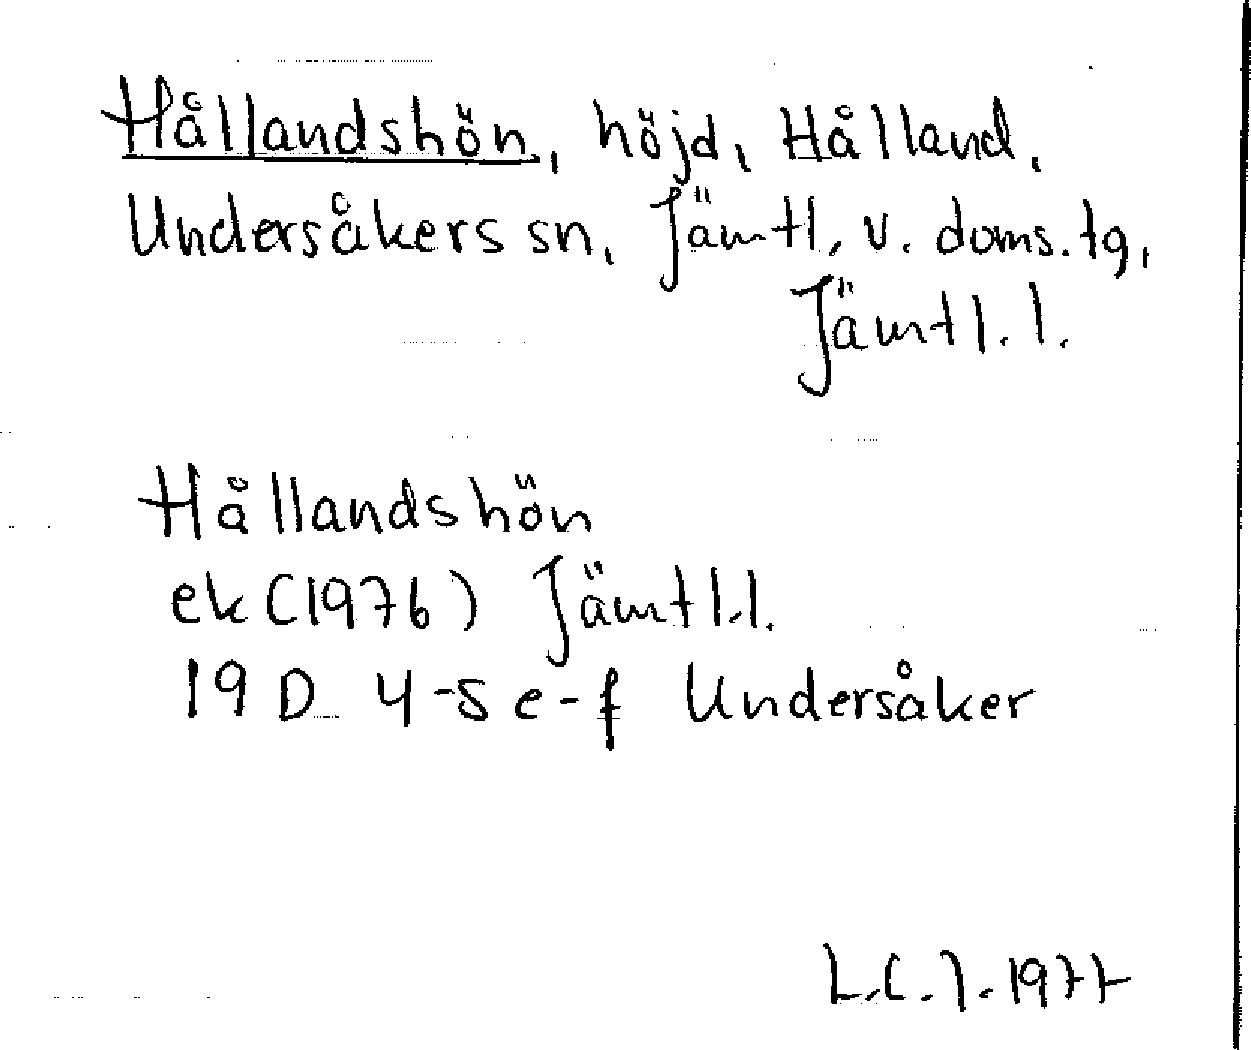 Hållandshön, höjd, Hålland,
Undersåkers sn, Jämtl. v. doms. tg,
Jämtl. l.
Hållandshön
ek (1976) Jämtl.l.
19 D 4-5 e-f Undersåker
L.C.J. 1977